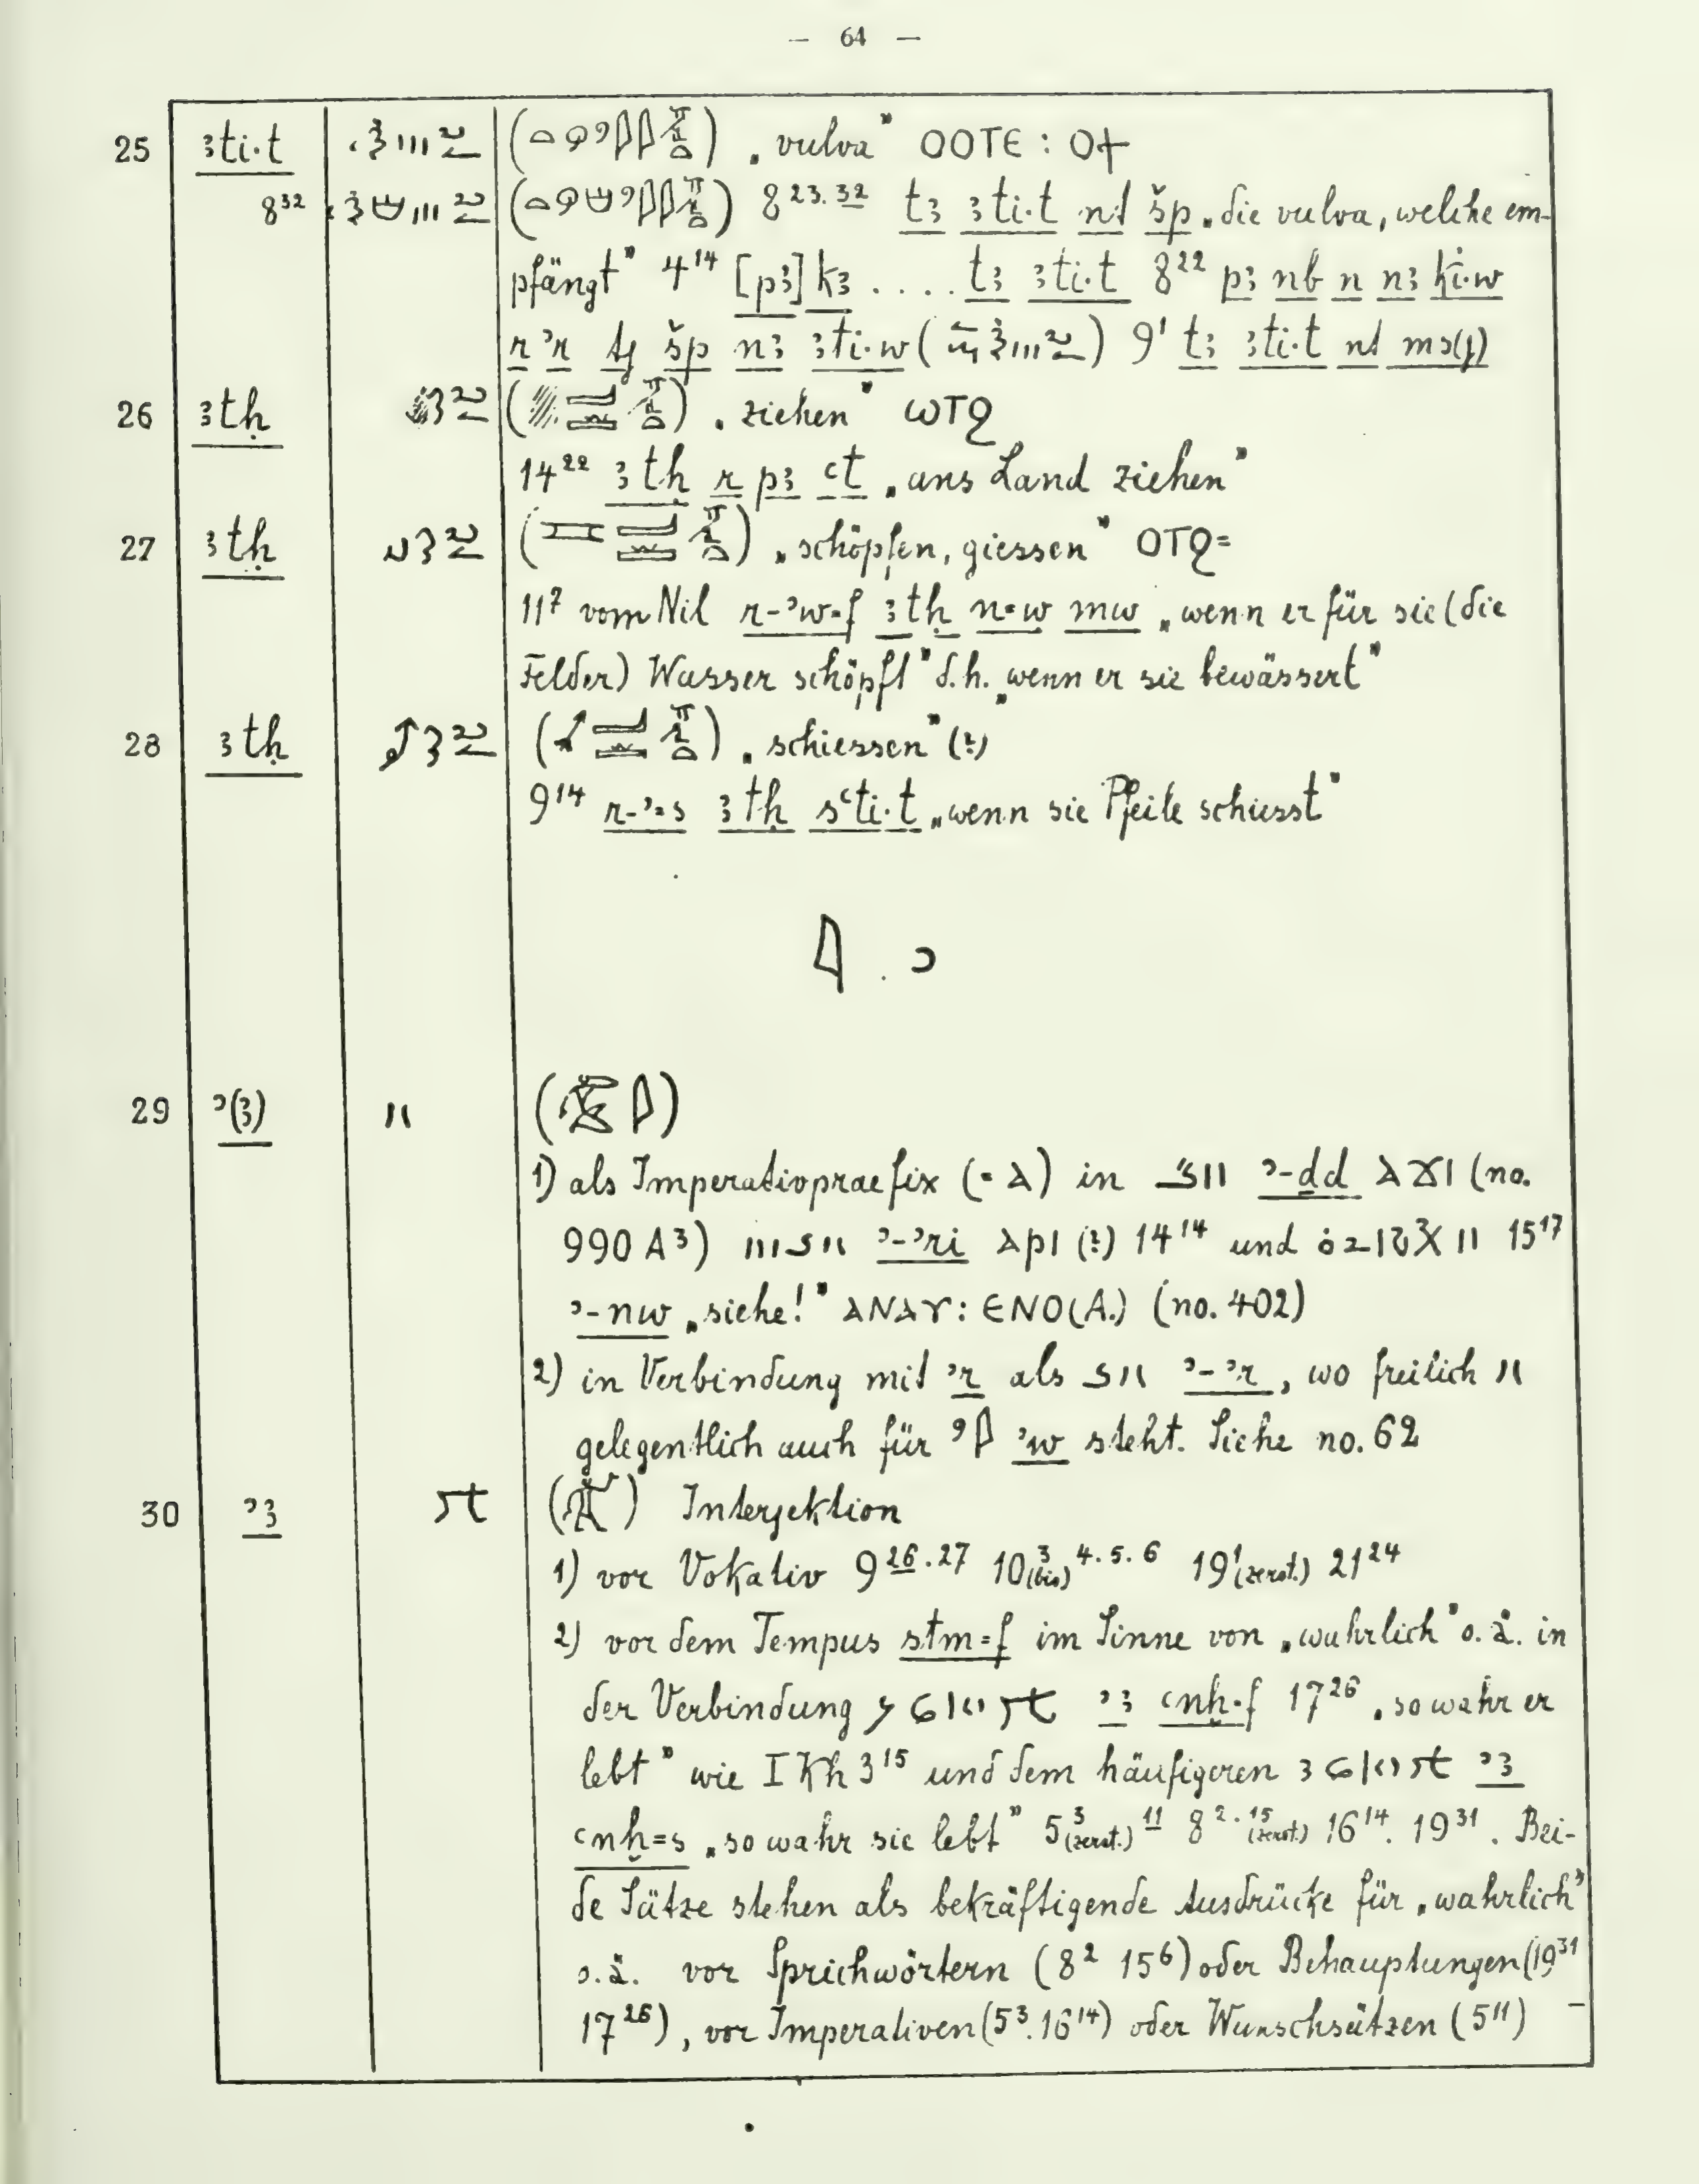 — 64 —
25 ꜣti·t ( ) „vulva” ⲞⲞⲦⲈ : Ⲟϯ
8³² ( ) 8²³·³² tꜣ ꜣti·t nt šp „die vulva, welche em-
pfängt” 4¹⁴ [pꜣ] kꜣ .... tꜣ ꜣti·t 8²² pꜣ nb n nꜣ ḱi·w
r ʾr šp nꜣ ꜣti·w ( ) 9¹ tꜣ ꜣti·t nt
26 ꜣtḥ ( ) „ziehen” ⲰⲦϨ
14²² ꜣtḥ r pꜣ ꜥt „ans Land ziehen”
27 ꜣtḥ ( ) „schöpfen, giessen” ⲞⲦϨ=
11⁷ vom Nil r-ʾw=f ꜣtḥ n=w mw „wenn er für sie (die
Felder) Wasser schöpft” d.h. „wenn er sie bewässert”
28 ꜣtḥ ( ) „schiessen” (?)
9¹⁴ r-ʾ=s ꜣtḥ sꜥti·t „wenn sie Pfeile schiesst”
𓇋 . ʾ
29 ʾ(ꜣ) ( 𓇋)
1) als Imperativpraefix (= ⲁ) in ʾ-ḏd ⲁϫⲓ (no.
990 A 3) ʾ-ʾri ⲁⲣⲓ (?) 14¹⁴ und 15¹⁷
ʾ-nw „siehe!” ⲀⲚⲀⲨ : ⲈⲚⲞ (A.) (no. 402)
2) in Verbindung mit ʾr als ʾ-ʾr, wo freilich
gelegentlich auch für ʾw steht. Siehe no. 62
30 ʾꜣ ( ) Interjektion
1) vor Vokativ 9²⁶·²⁷ 10³(bis)⁴·⁵·⁶ 19¹(zerst.) 21²⁴
2) vor dem Tempus stm=f im Sinne von „wahrlich” o.ä. in
der Verbindung ʾꜣ ꜥnḫ=f 17²⁶ „so wahr er
lebt” wie I Kh 3¹⁵ und dem häufigeren ʾꜣ
ꜥnḫ=s „so wahr sie lebt” 5³(zerst.)¹¹ 8²·¹⁵(zerst.) 16¹⁴. 19³¹. Bei-
de Sätze stehen als bekräftigende Ausdrücke für „wahrlich”
o.ä. vor Sprichwörtern (8² 15⁶) oder Behauptungen (19³¹
17²⁶), vor Imperativen (5³. 16¹⁴) oder Wunschsätzen (5¹¹) –